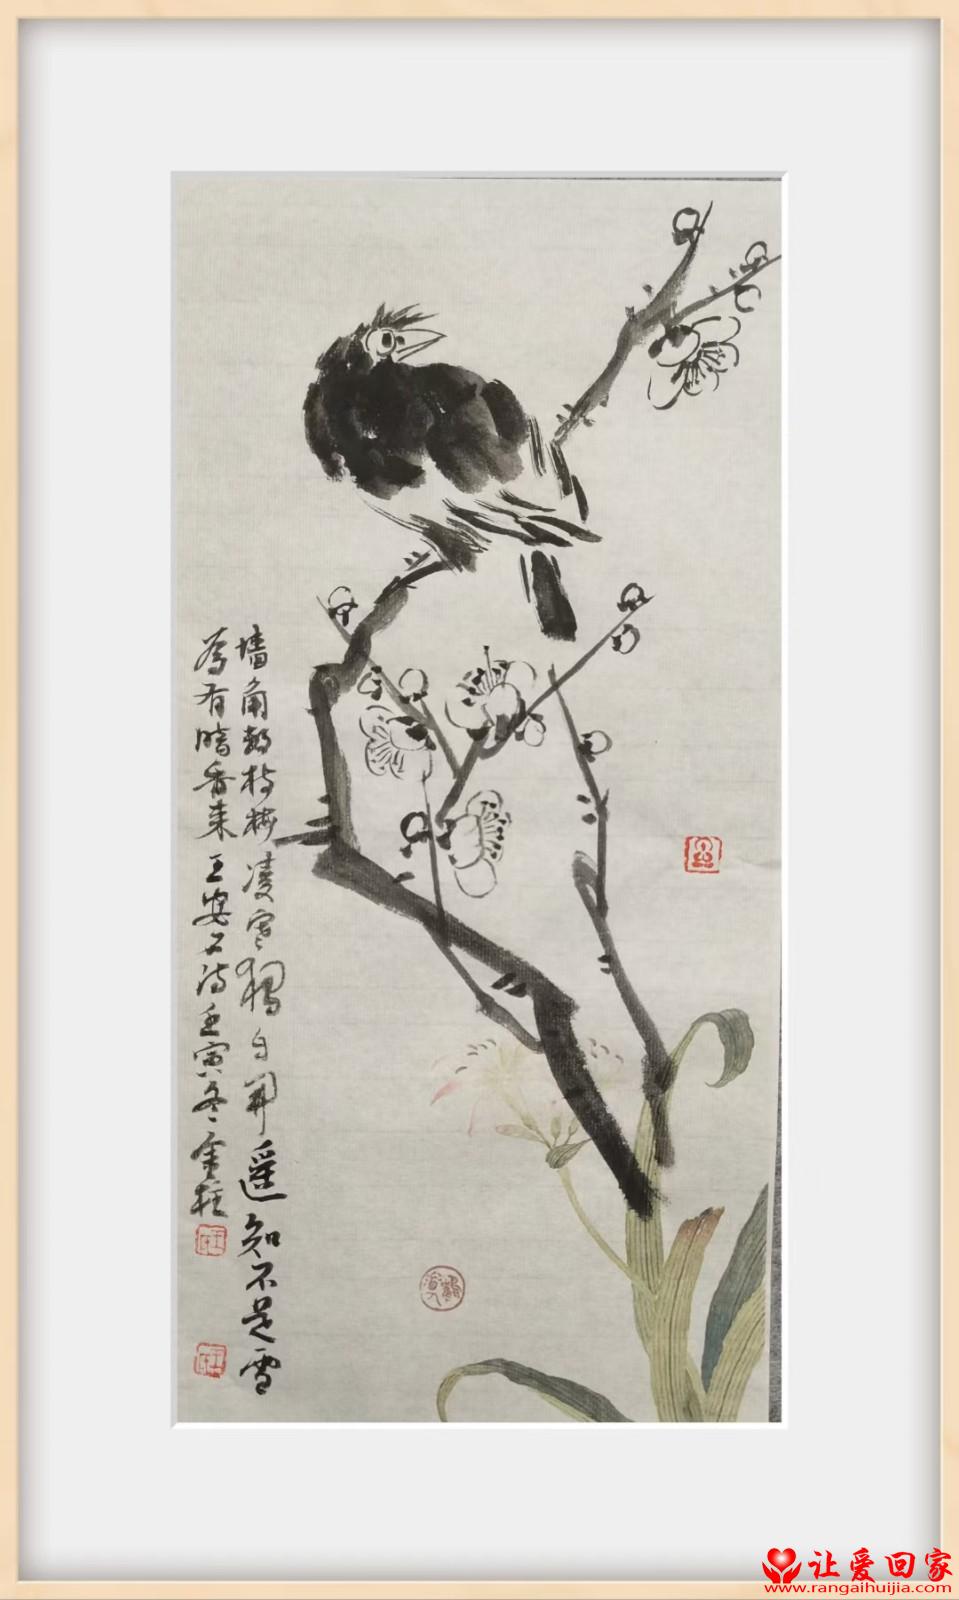 墙角数枝梅凌寒独自开遥知不是雪
为有暗香来王安石诗壬寅冬金柱
让爱回家
www.rangaihuijia.com